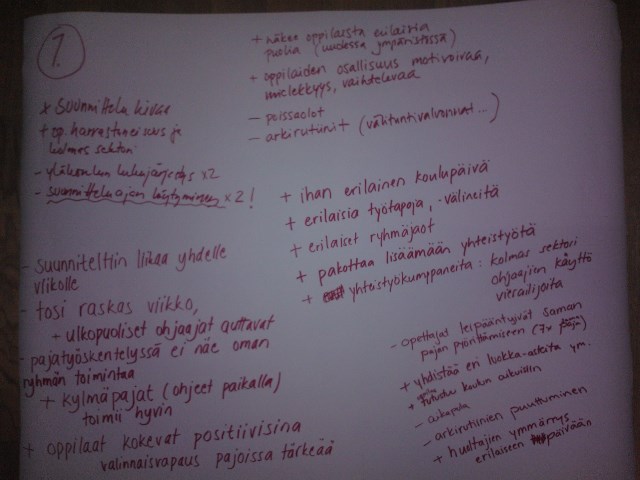 1.
+ näkee oppilaista erilaisia
puolia (uudessa ympäristössä)
+ oppilaiden osallisuus motivoivaa,
mielekkyys, vaihtelevaa
- poissaolot
- arkirutiinit (välituntivalvonnat...)
+ suunnittelu kivaa
+ op. harrastuneisuus ja
kolmas sektori
- yläkoulun lukujärjestys x2
- suunnitteluajan löytyminen x2!
+ ihan erilainen koulupäivä
+ erilaisia työtapoja, -välineitä
+ erilaiset ryhmäjaot
+ pakottaa lisäämään yhteistyötä
+ yhteistyökumppaneita: kolmas sektori
ohjaajien käyttö
vierailijoita
- suunniteltiin liikaa yhdelle
viikolle
- tosi raskas viikko,
+ ulkopuoliset ohjaajat auttavat
- pajatyöskentelyssä ei näe oman
ryhmän toimintaa
+ kylmäpajat (ohjeet paikalla)
toimii hyvin
+ oppilaat kokevat positiivisina
valinnaisvapaus pajoissa tärkeää
- opettajat leipääntyivät saman
pajan pyörittämiseen (7x paja)
+ yhdistää eri luokka-asteita ym.
+ tutustuu koulun aikuisiin
- aikapula
- arkirutiinien puuttuminen
+ huoltajien ymmärrys
erilaiseen päivään